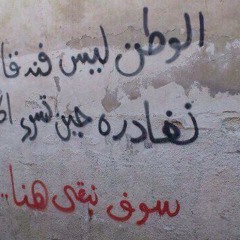 الوطن ليس فندقا
نغادره حين تسوء
سوف نبقى هنا..